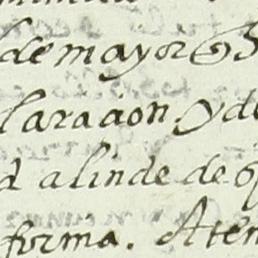 de mayor
laraaon. y de
alinde de
forma. Aten